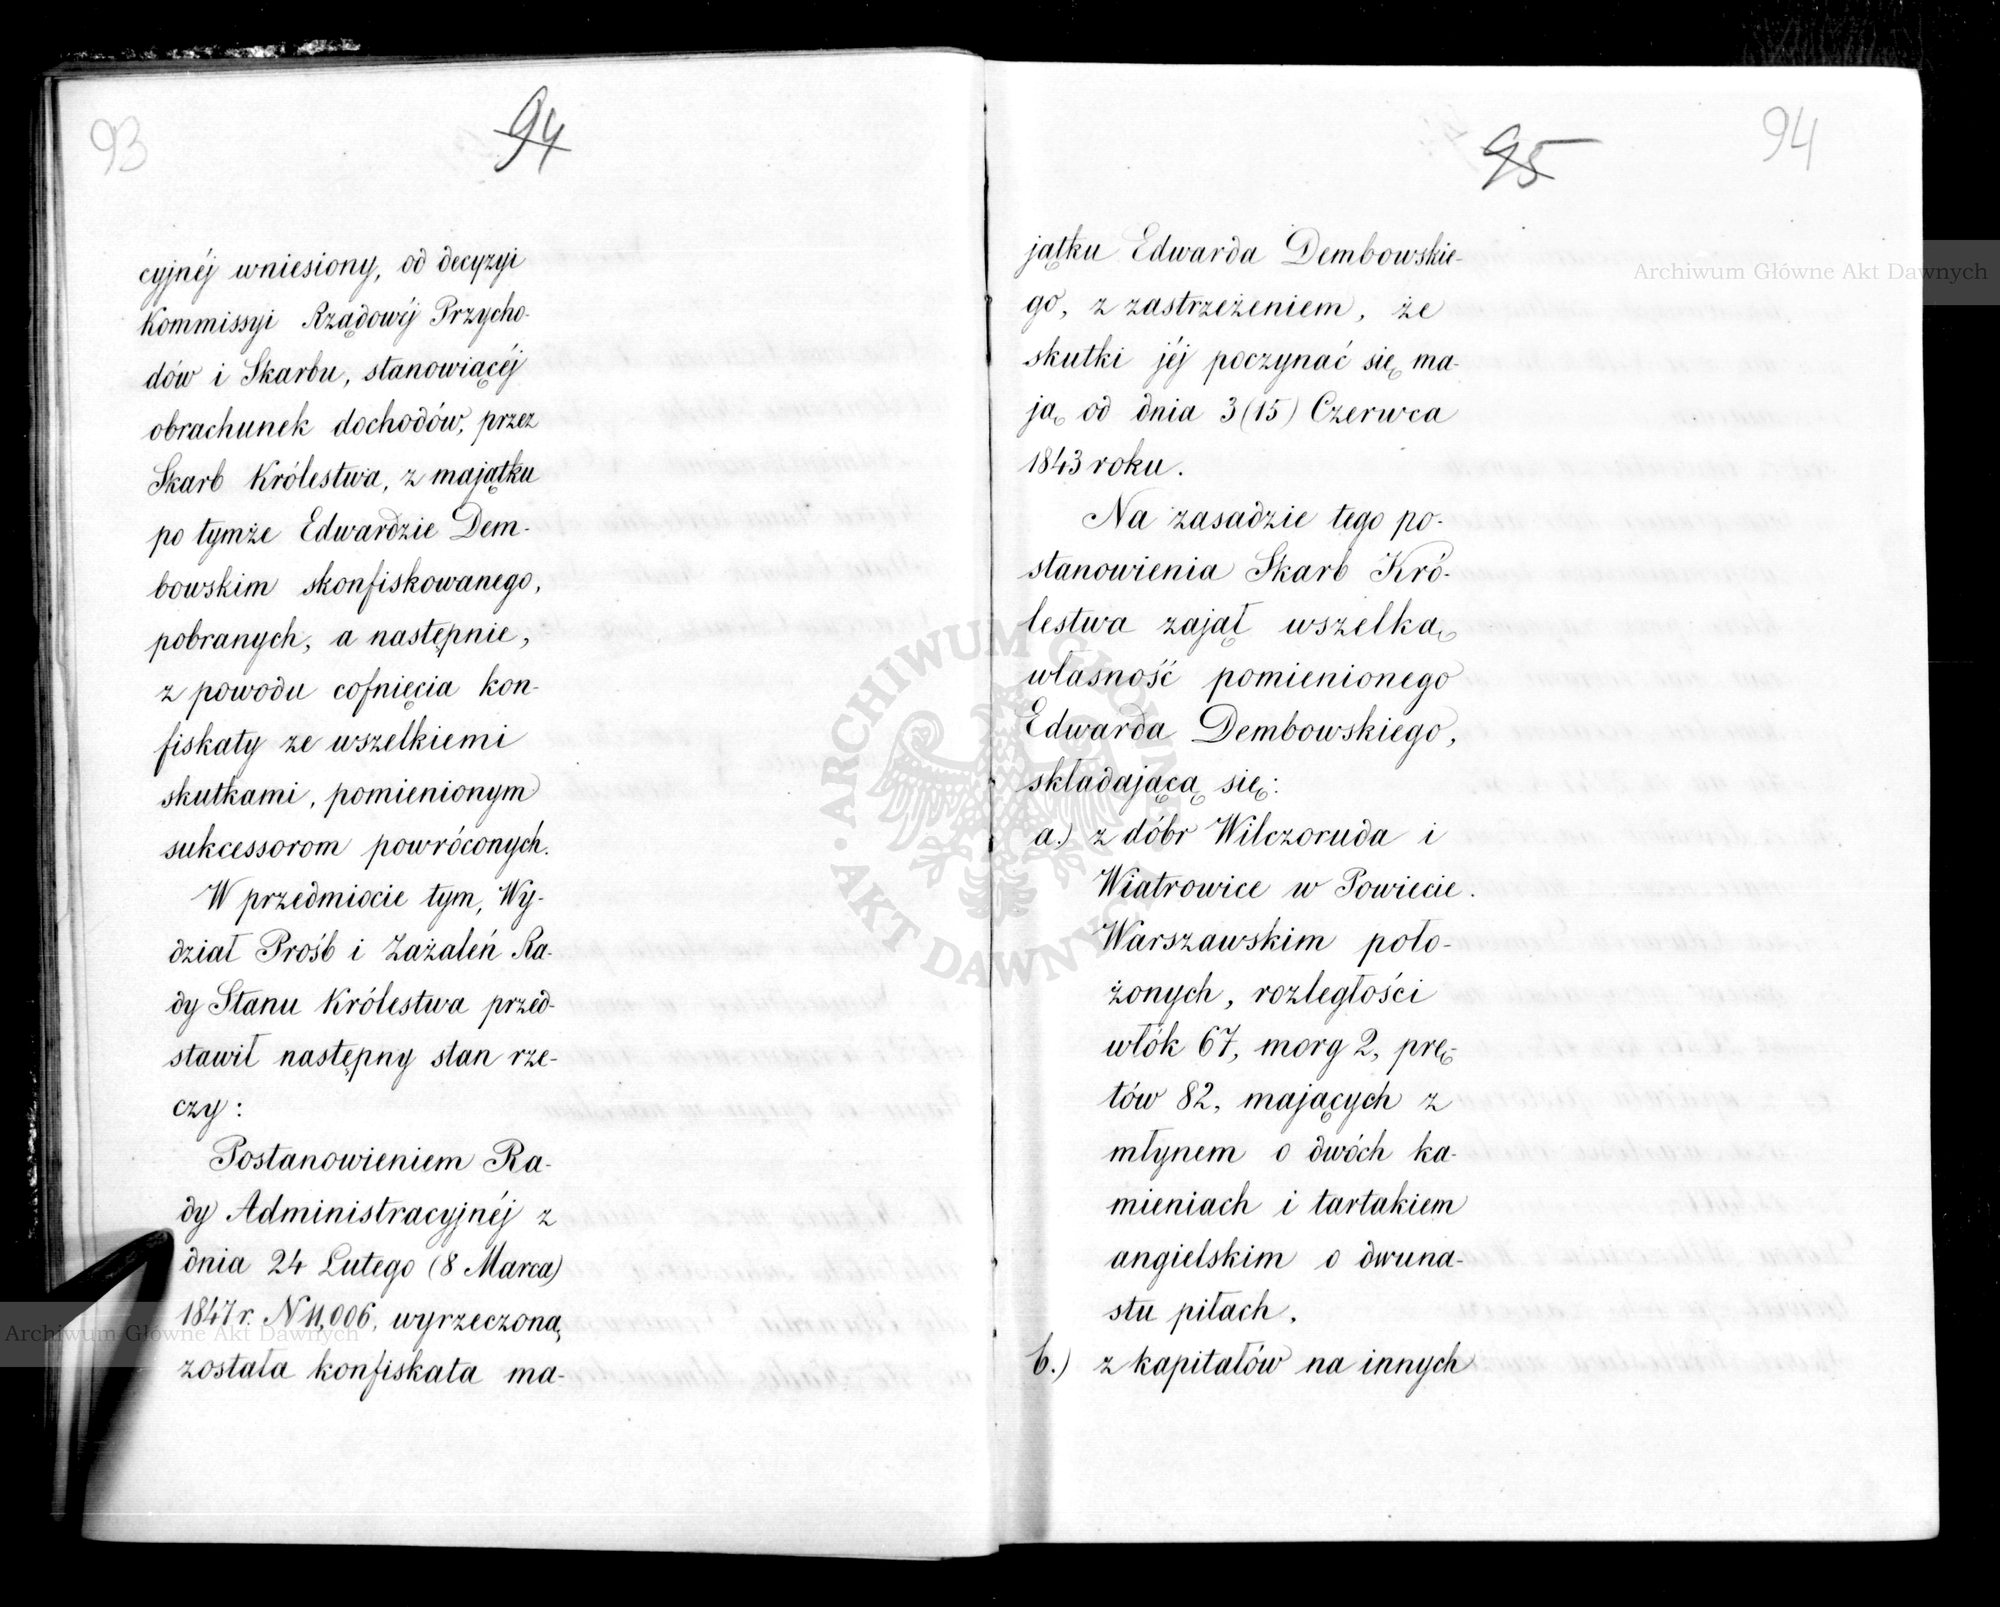 93
94
cyjnéj wniesiony, od decyzyi
Kommissyi Rządowéj Przycho-
dów i Skarbu, stanowiącéj
obrachunek dochodów, przez
Skarb Królestwa, z majątku
po tymże Edwardzie Dem-
bowskim skonfiskowanego,
pobranych, a następnie,
z powodu cofnięcia kon-
fiskaty ze wszelkiemi
skutkami, pomienionym
sukcessorom powróconych.
W przedmiocie tym, Wy-
dział Prośb i Zażaleń Ra-
dy Stanu Królestwa przed-
stawił następny stan rze-
czy:
Postanowieniem Ra-
dy Administracyjnéj z
dnia 24 Lutego (8 Marca)
1847 r. N 11,006, wyrzeczoną
została konfiskata ma-
95
94
jątku Edwarda Dembowskie-
go, z zastrzeżeniem, że
skutki jéj poczynać się ma-
ją od dnia 3 (15) Czerwca
1843 roku.
Na zasadzie tego po-
stanowienia Skarb Kró-
lestwa zajął wszelką
własność pomienionego
Edwarda Dembowskiego,
składającą się:
a.) z dóbr Wilczoruda i
Wiatrowice w Powiecie
Warszawskim poło-
żonych, rozległości
włók 67, morg 2, prę-
tów 82, mających z
młynem o dwóch ka-
mieniach i tartakiem
angielskim o dwuna-
stu piłach.
b.) z kapitałów na innych
Archiwum Główne Akt Dawnych
Archiwum Główne Akt Dawnych
ARCHIWUM GŁÓWNE AKT DAWNYCH